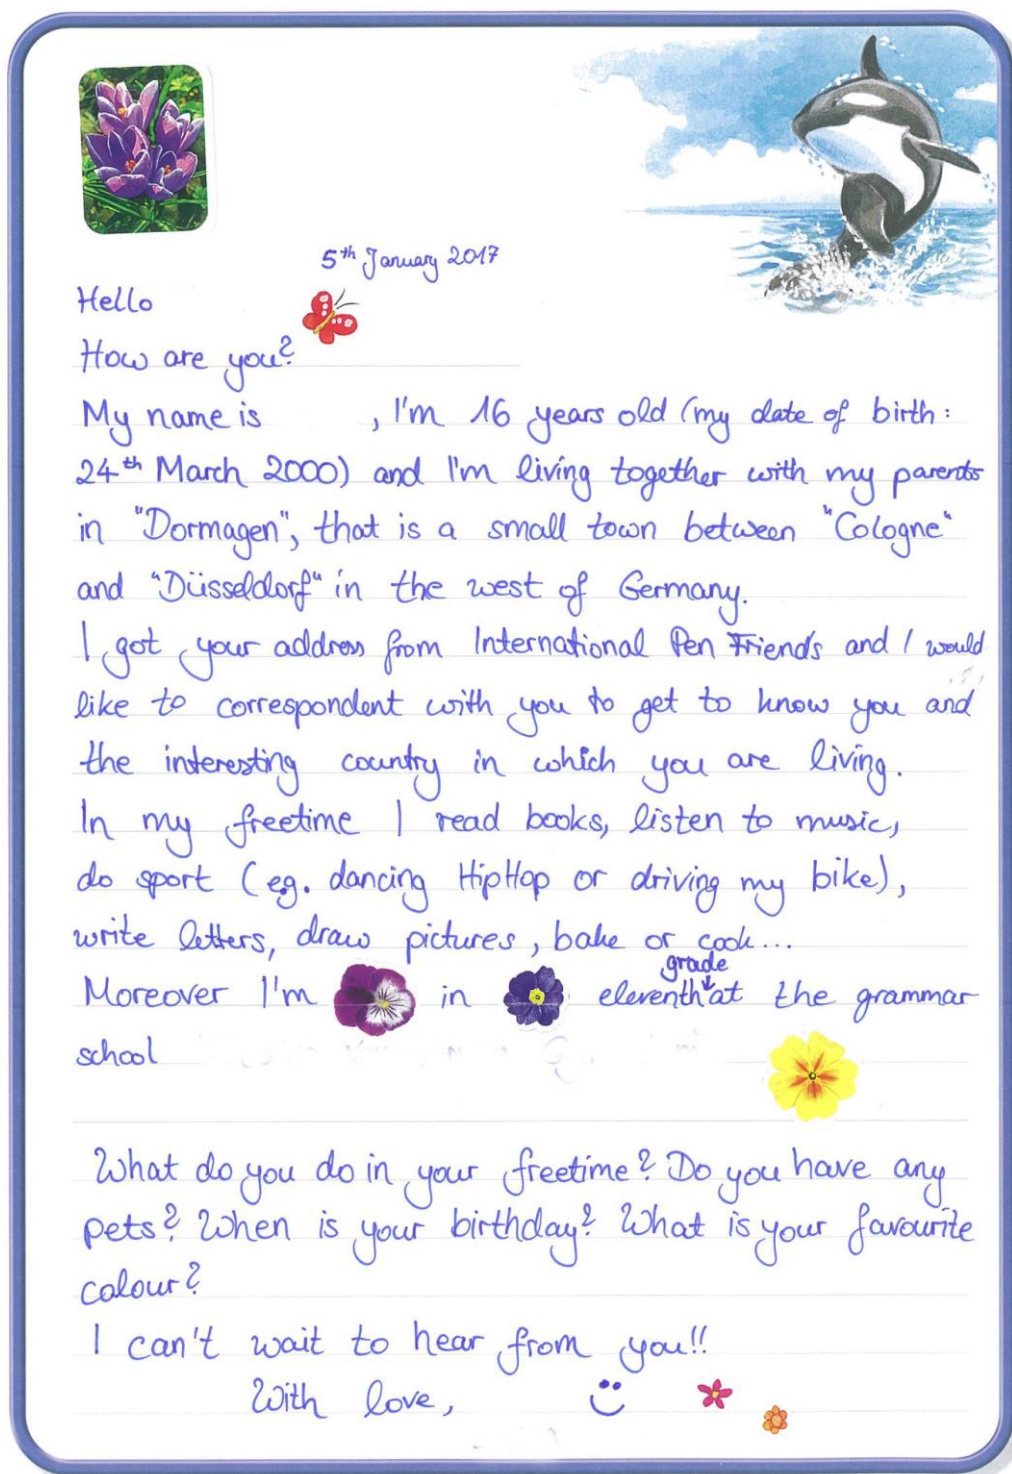 5th January 2017
Hello
How are you?
My name is , I'm 16 years old (my date of birth:
24th March 2000) and I'm living together with my parents
in "Dormagen", that is a small town between "Cologne"
and "Düsseldorf" in the west of Germany.
I got your address from International Pen Friends and I would
like to correspondent with you to get to know you and
the interesting country in which you are living.
In my freetime I read books, listen to music,
do sport (eg. dancing HipHop or driving my bike),
write letters, draw pictures, bake or cook...
grade
Moreover I'm in eleventh at the grammar
school
What do you do in your freetime? Do you have any
pets? When is your birthday? What is your favourite
colour?
I can't wait to hear from you!!
With love,